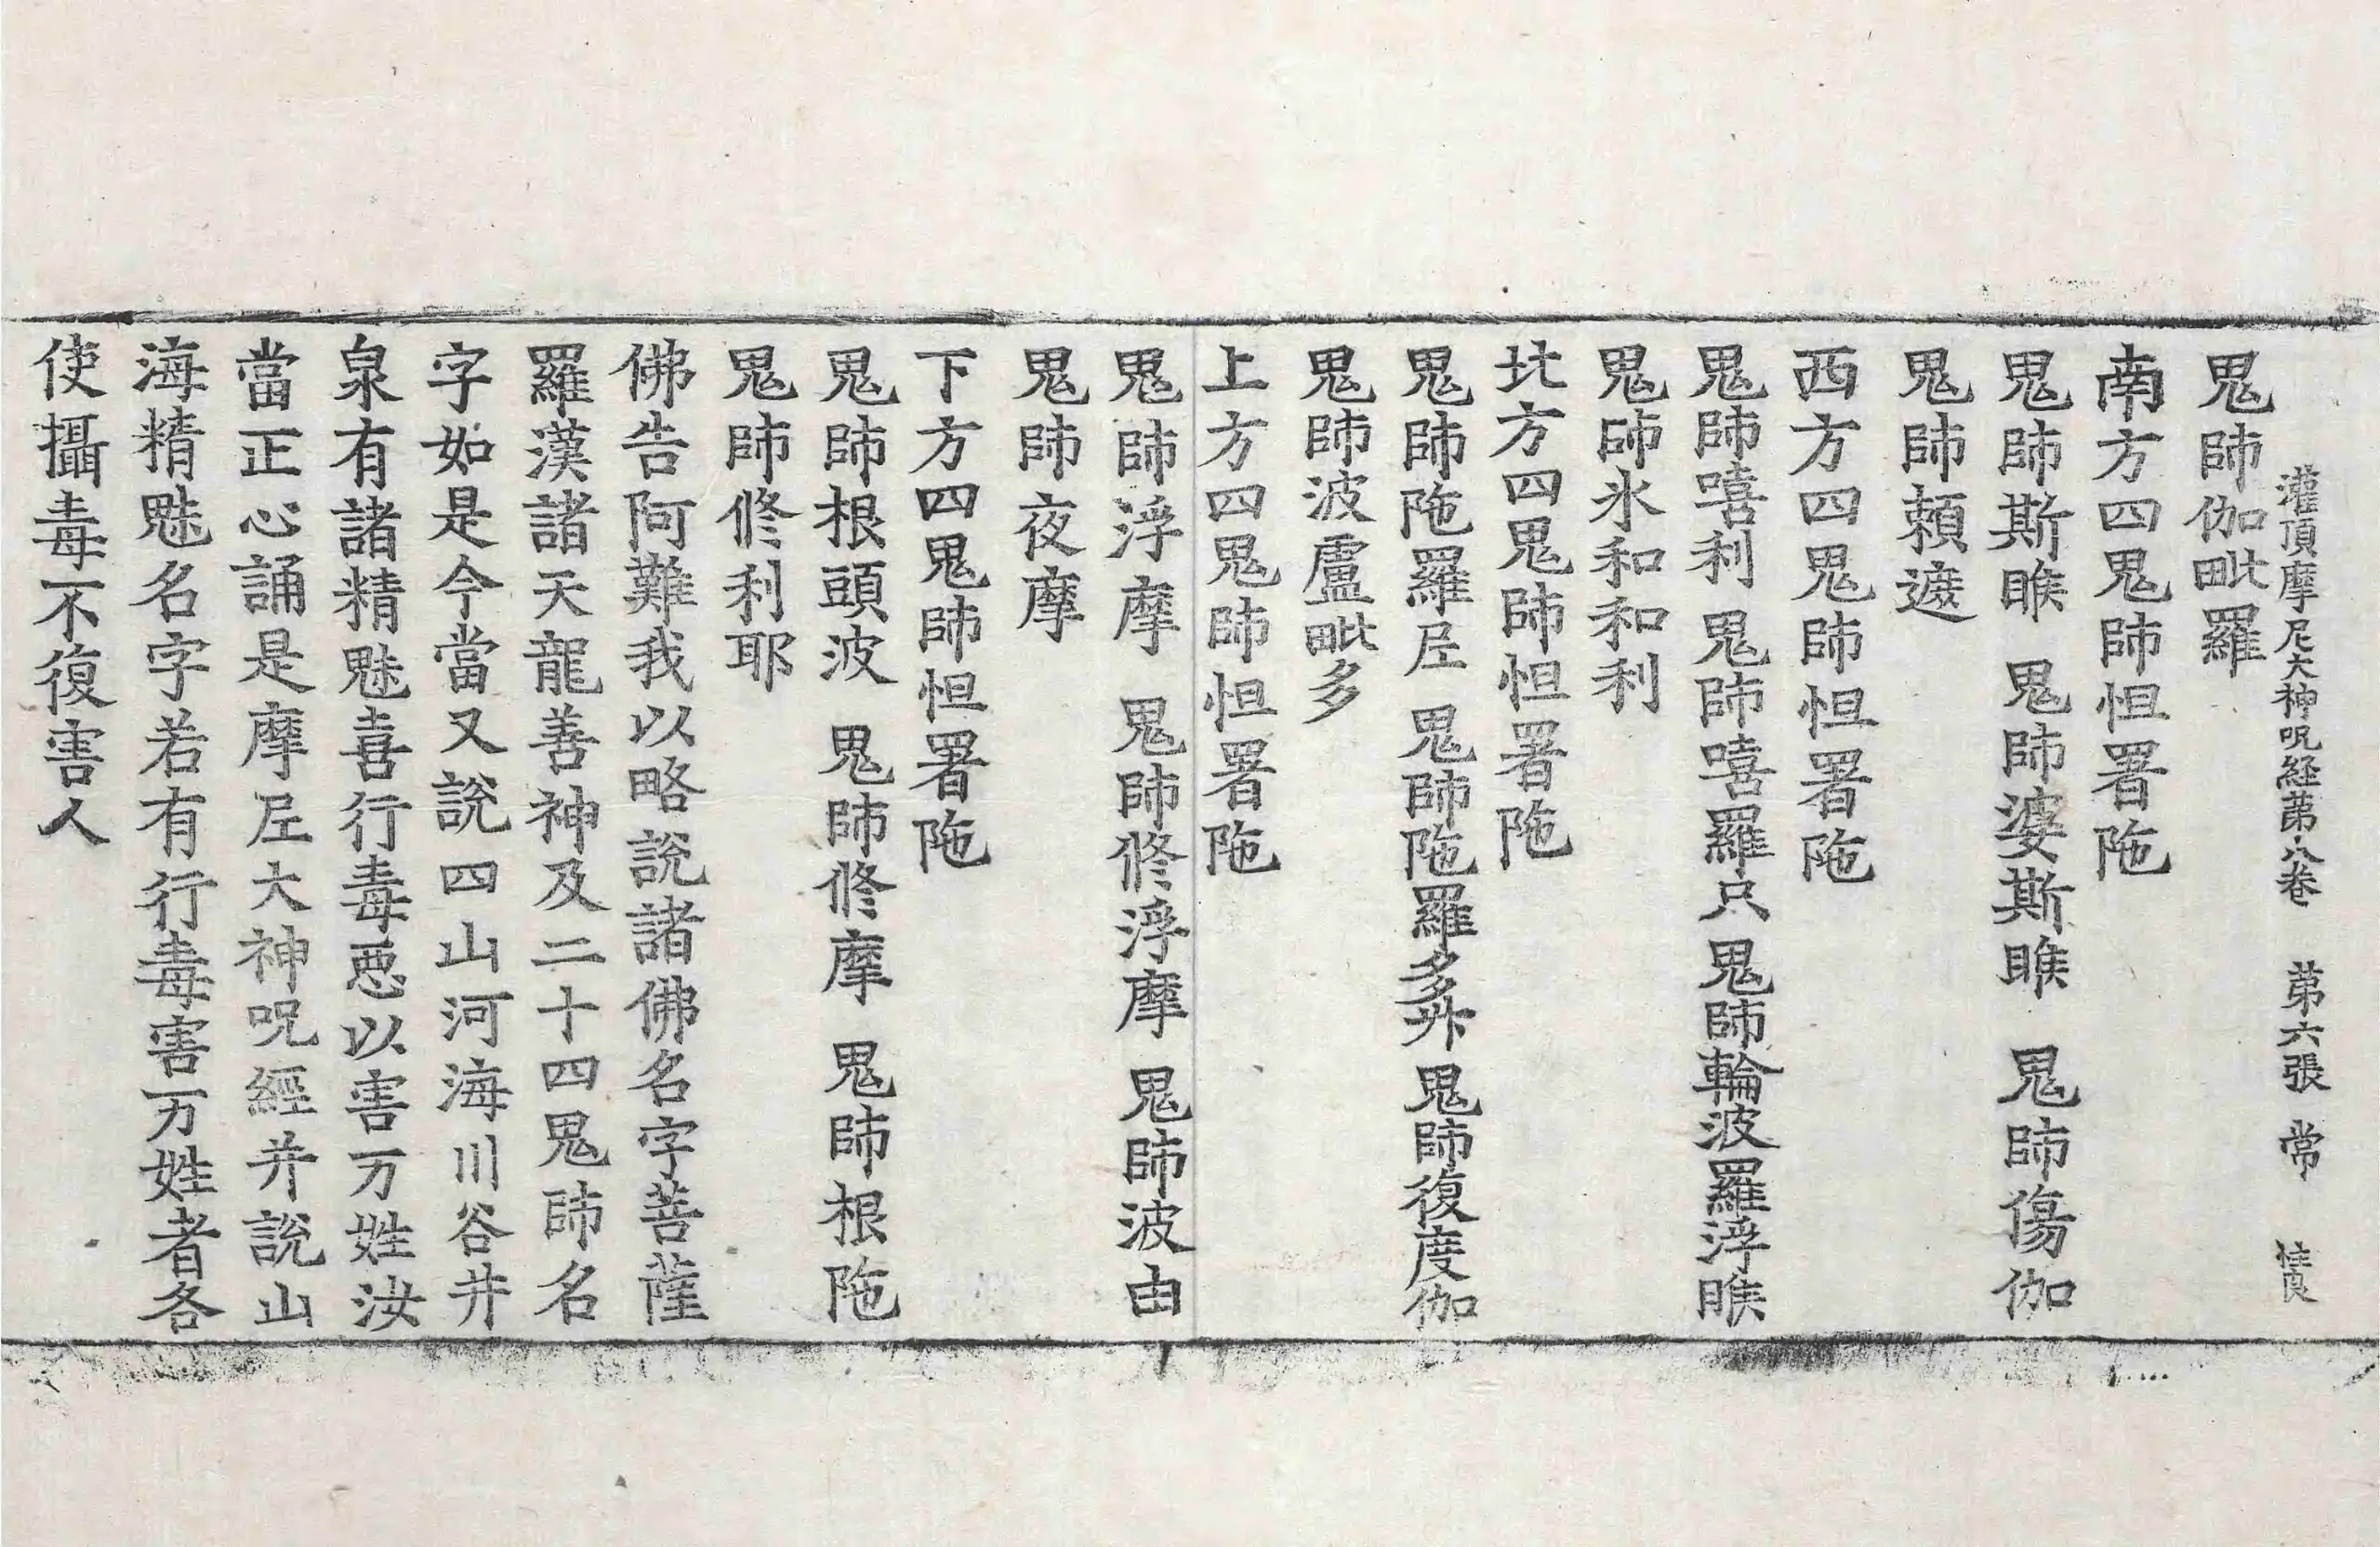 灌頂摩尼大神呪経苐八卷 苐六張 常
鬼師伽毗羅
南方四鬼師怛署陁
鬼師斯睺 鬼師婆斯睺 鬼師傷伽
鬼師頼遮
西方四鬼師怛署陁
鬼師嘻利 鬼師嘻羅只 鬼師輪波羅浮睺
鬼師氷和和利
北方四鬼師怛署陁
鬼師陁羅𡰱 鬼師陁羅多𠦑 鬼師復度伽
鬼師波盧毗多
上方四鬼師怛署陁
鬼師浮摩 鬼師修浮摩 鬼師波由
鬼師夜摩
下方四鬼師怛署陁
鬼師根頭波 鬼師修摩 鬼師根陁
鬼師修利耶
佛告阿難我以略說諸佛名字菩薩
羅漢諸天龍善神及二十四鬼師名
字如是今當又說四山河海川谷井
泉有諸精魅喜行毒惡以害万姓汝
當正心誦是摩𡰱大神呪經并說山
海精魅名字若有行毒害万姓者各
使攝毒不復害人